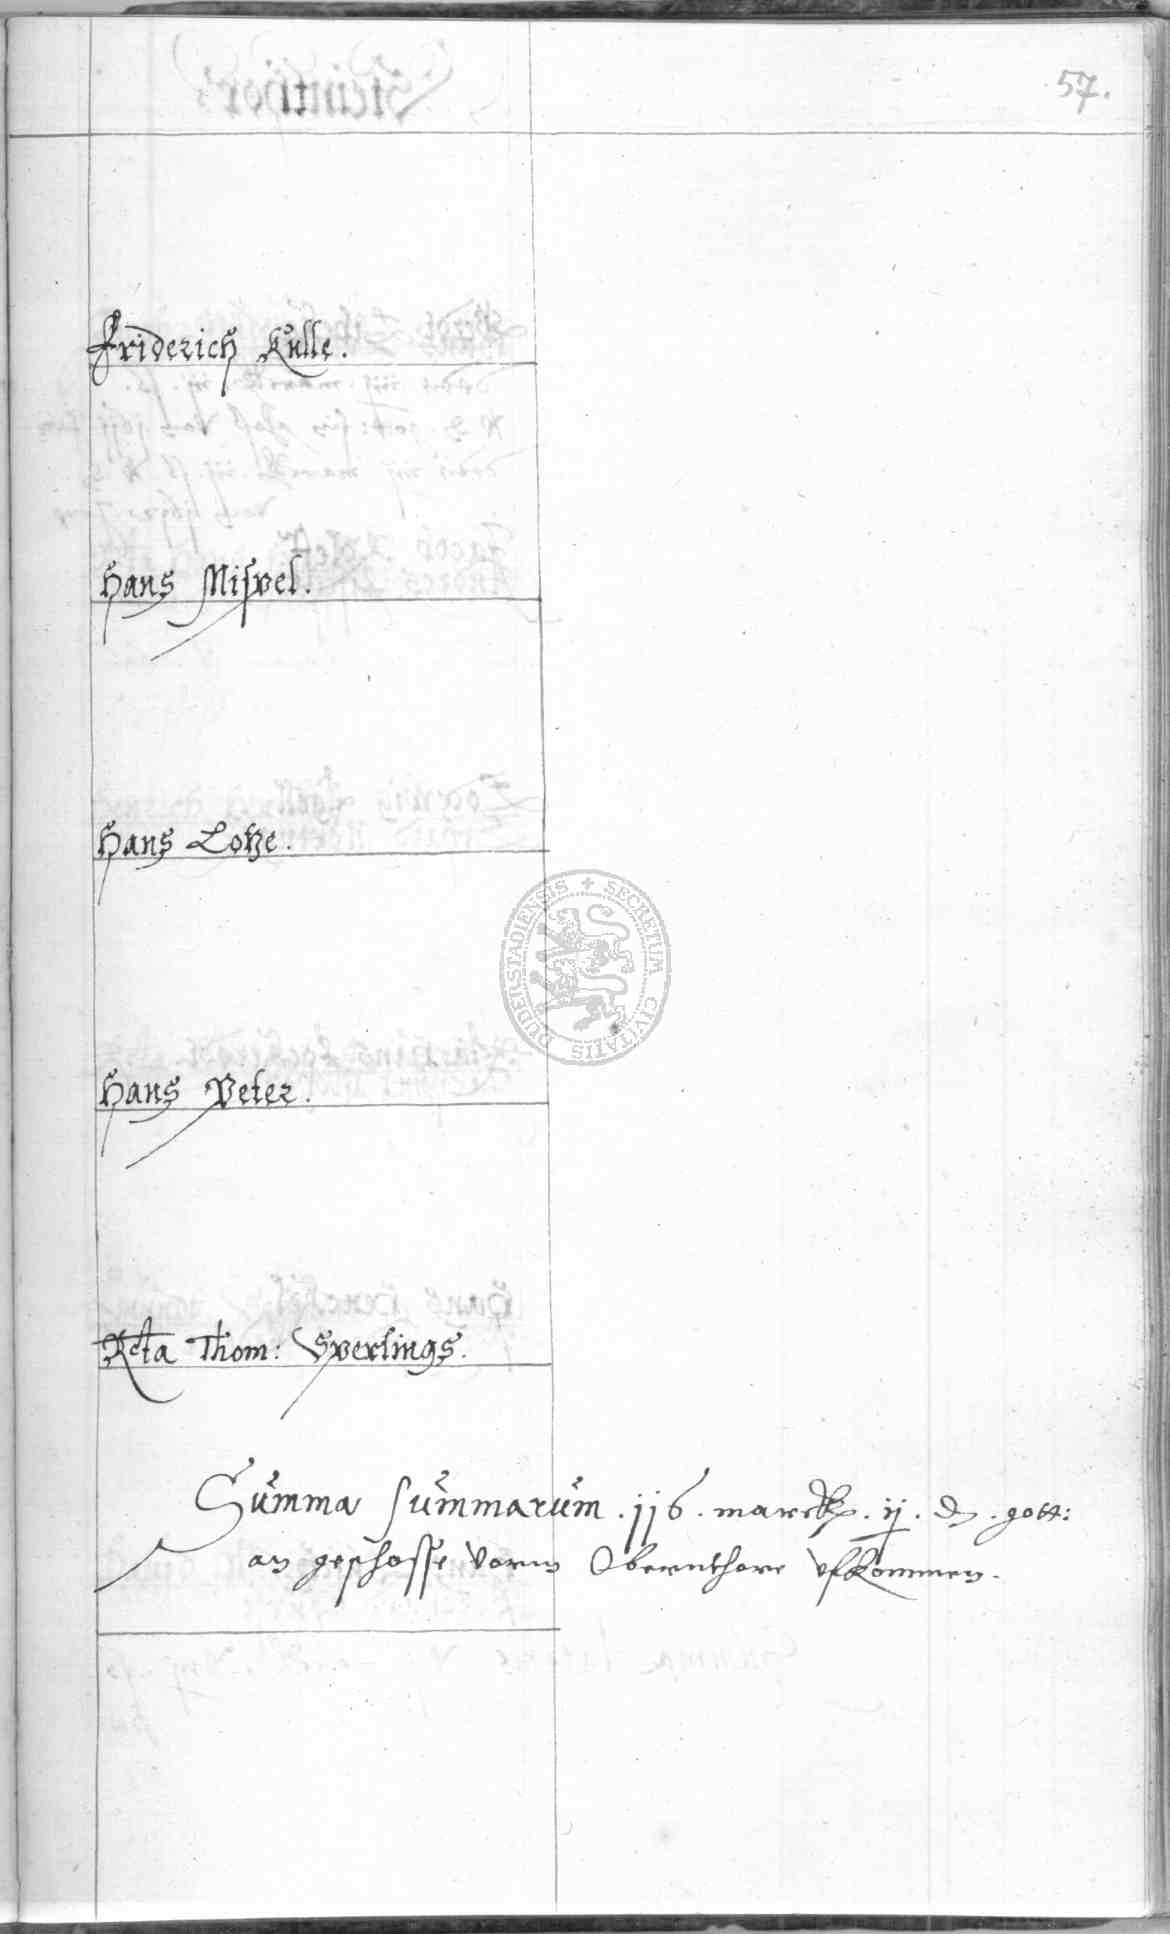 57.
Friderich Kulle.
Hans Mispel.
Hans Lotze.
Hans Peter.
Relta Thom: Sperlings.
Summa summarum . jj6 . marck . ij . ₰ . gott:
an geschosse vorm Obernthore vfkommen.
SECRETUM CIVITATIS DUDERSTADIENSIS